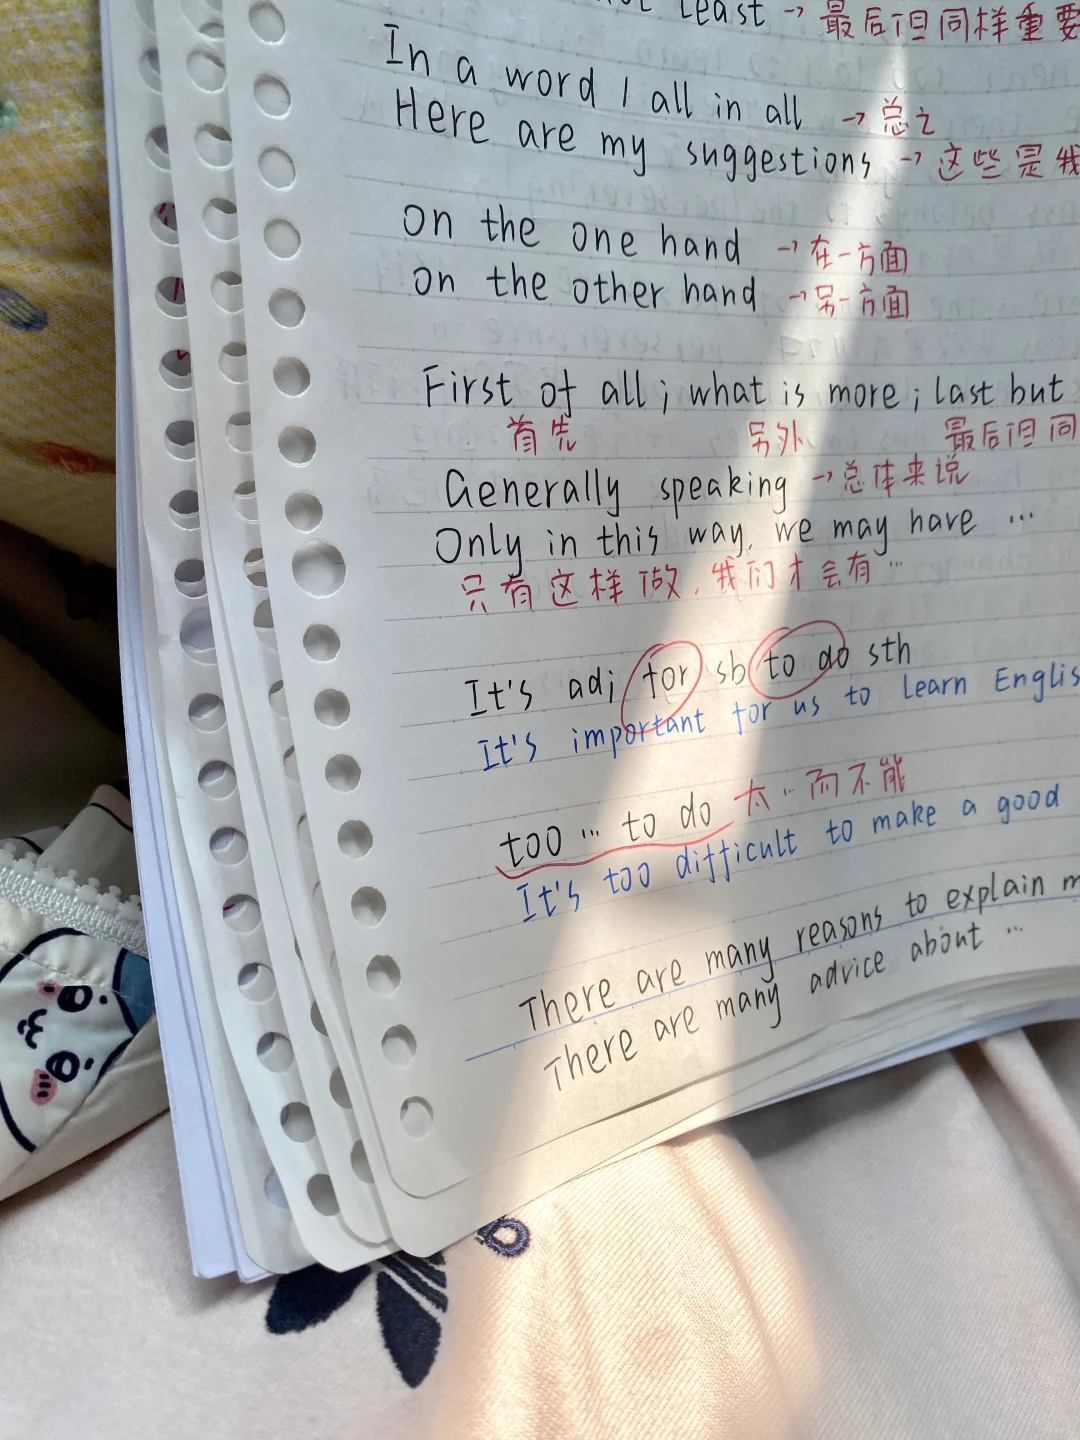 Least → 最后但同样重要
In a word / all in all → 总之
Here are my suggestions → 这些是我
on the one hand → 在一方面
on the other hand → 另一方面
First of all ; what is more ; last but
首先 另外 最后但同
Generally speaking → 总体来说
Only in this way, we may have ...
只有这样做，我们才会有...
It's adj for sb to do sth
It's important for us to Learn Englis
too ... to do 太...而不能
It's too difficult to make a good
There are many reasons to explain m
There are many advice about ...